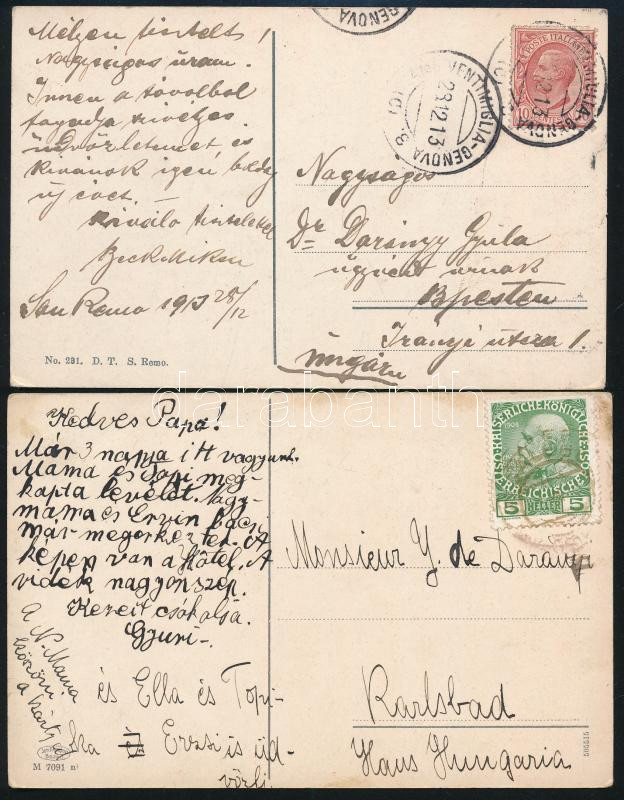 Mélyen tisztelt
Nagyságos uram!
Innen a távolból
fogadja szívélyes
üdvözletemet és
kívánok igen boldog
új évet.
Kiváló tisztelettel
Beck Miksa
San Remo 1913 28/12
No. 291. D. T. S. Remo.
GENOVA
VENTIMIGLIA-GENOVA
28.12.13
POSTE ITALIANE
10
VENTIMIGLIA-GENOVA
Nagyságos
Dr Darányi Gyula
ügyvéd úrnak
Bpesten
Irányi útcza 1.
Ungarn
darabanth
Kedves Papa!
Már 3 napja itt vagyunk.
Mama és Topi meg-
kapta levelét. Nagy-
mama és Ervin bácsi
már megérkeztek. A
képen van a Hôtel. A
vidék nagyon szép.
Kezeit csókolja
Gyuri.
és Ella és Topi-
ka és Erzsi is üd-
vözli
A N. Mama
a kárty
M 7091 n
KAISERLICHE KÖNIGLICHE ÖSTERREICHISCHE
1908
5 HELLER 5
Monsieur Y. de Darányi
Karlsbad
Haus Hungaria
505515